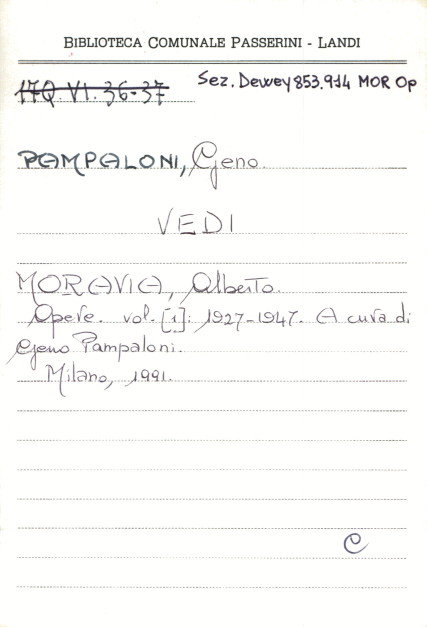 BIBLIOTECA COMUNALE PASSERINI - LANDI
17Q. VI. 36-37 Sez. Dewey 853.914 MOR Op
PAMPALONI, Geno.
VEDI
MORAVIA, Alberto.
Opere. vol. [1]: 1927-1947. A cura di
Geno Pampaloni.
Milano, 1991.
C